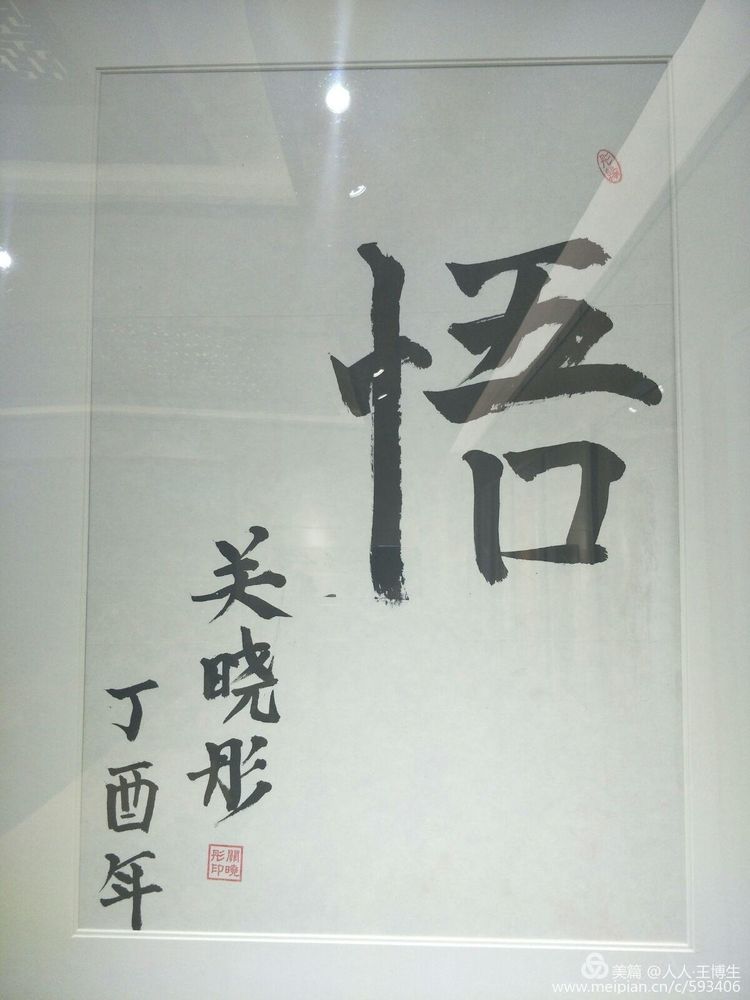 悟
关晓彤
關曉彤印
丁酉年
美篇 @人人·王博生
www.meipian.cn/c/593406